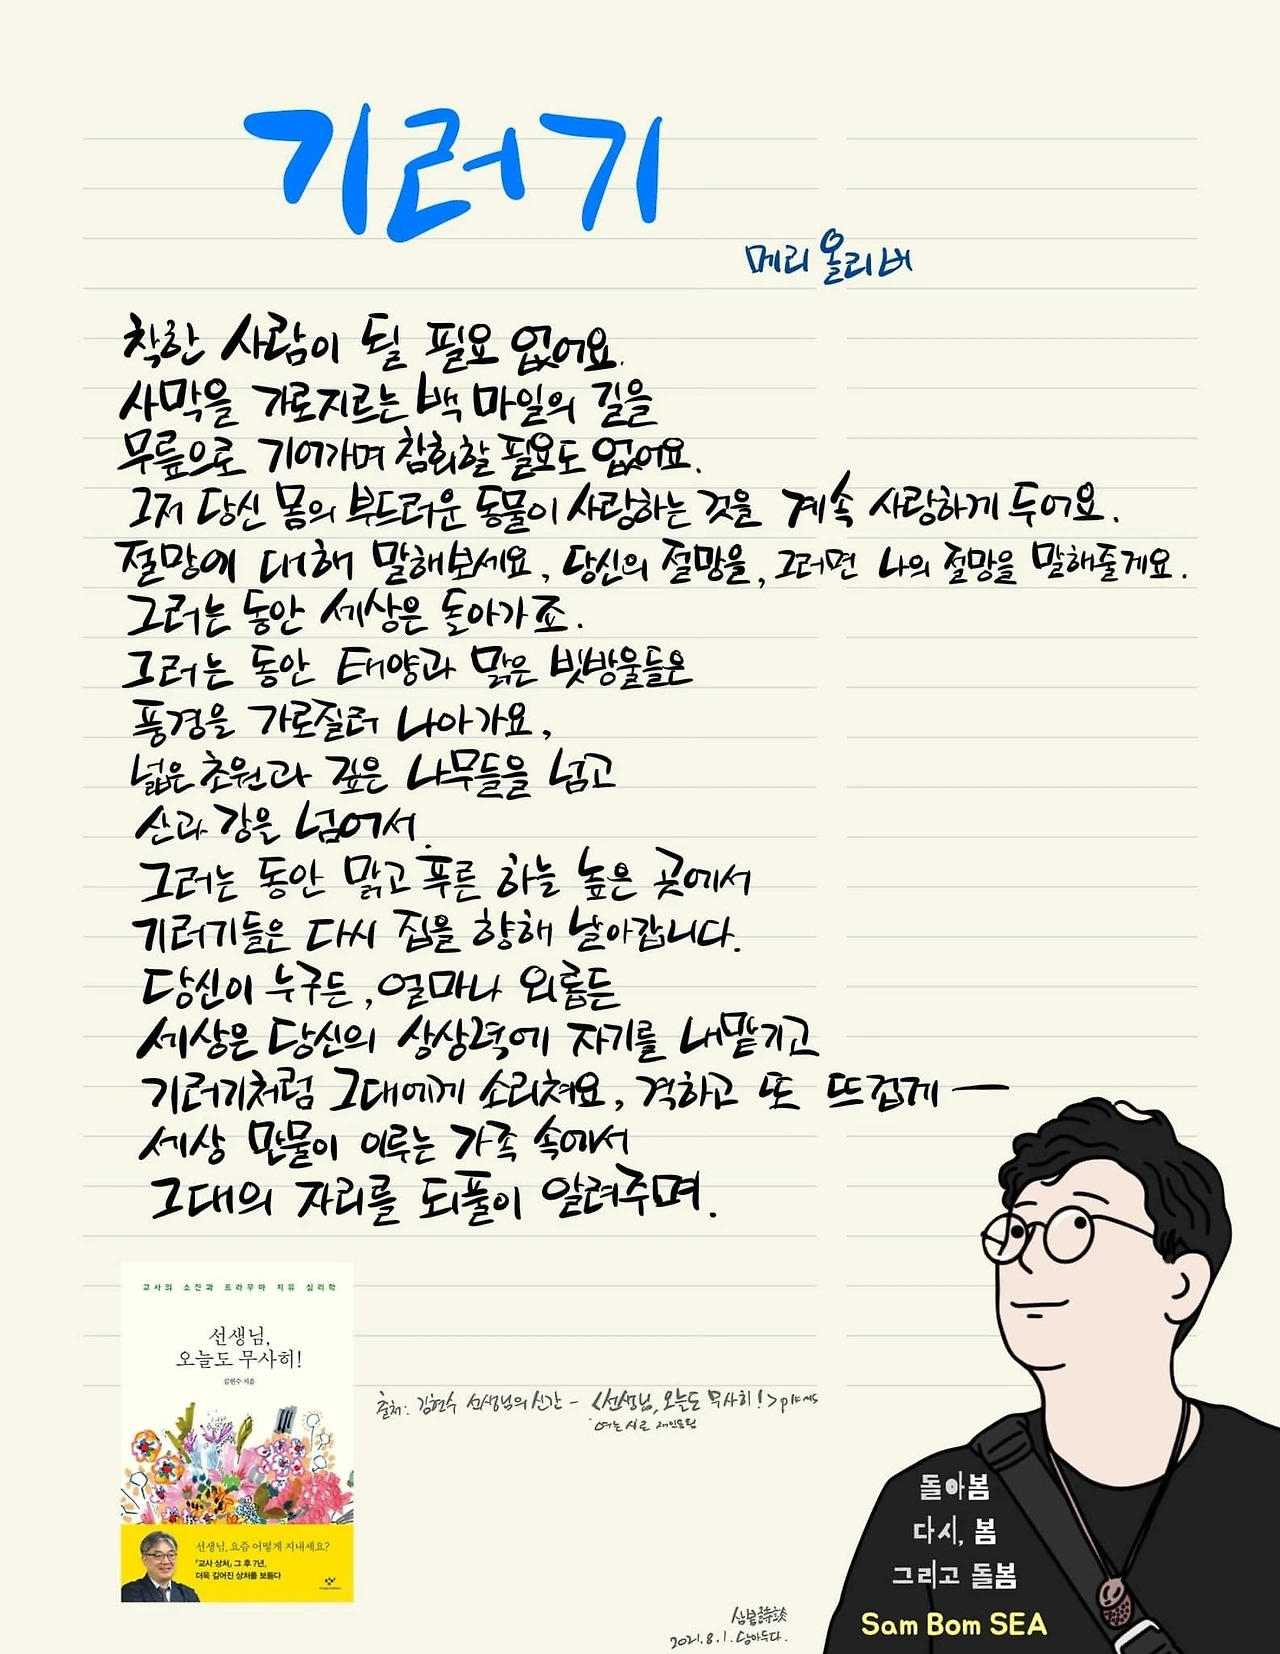 기러기
메리 올리버
착한 사람이 될 필요 없어요.
사막을 가로지르는 백 마일의 길을
무릎으로 기어가며 참회할 필요도 없어요.
그저 당신 몸의 부드러운 동물이 사랑하는 것을 계속 사랑하게 두어요.
절망에 대해 말해보세요, 당신의 절망을, 그러면 나의 절망을 말해줄게요.
그러는 동안 세상은 돌아가죠.
그러는 동안 태양과 맑은 빗방울들은
풍경을 가로질러 나아가요,
넓은 초원과 깊은 나무들을 넘고
산과 강을 넘어서.
그러는 동안 맑고 푸른 하늘 높은 곳에서
기러기들은 다시 집을 향해 날아갑니다.
당신이 누구든, 얼마나 외롭든
세상은 당신의 상상력에 자기를 내맡기고
기러기처럼 그대에게 소리쳐요, 격하고 또 뜨겁게 —
세상 만물이 이루는 가족 속에서
그대의 자리를 되풀이 알려주며.
교사의 소진과 트라우마 치유 심리학
선생님,
오늘도 무사히!
김현수 지음
선생님, 요즘 어떻게 지내세요?
『교사 상처』 그 후 7년,
더욱 깊어진 상처를 보듬다
출처: 김현수 선생님의 신간 - <선생님, 오늘도 무사히!>
여는 시로
2021. 8. 1. 담아두다.
돌아봄
다시, 봄
그리고 돌봄
Sam Bom SEA